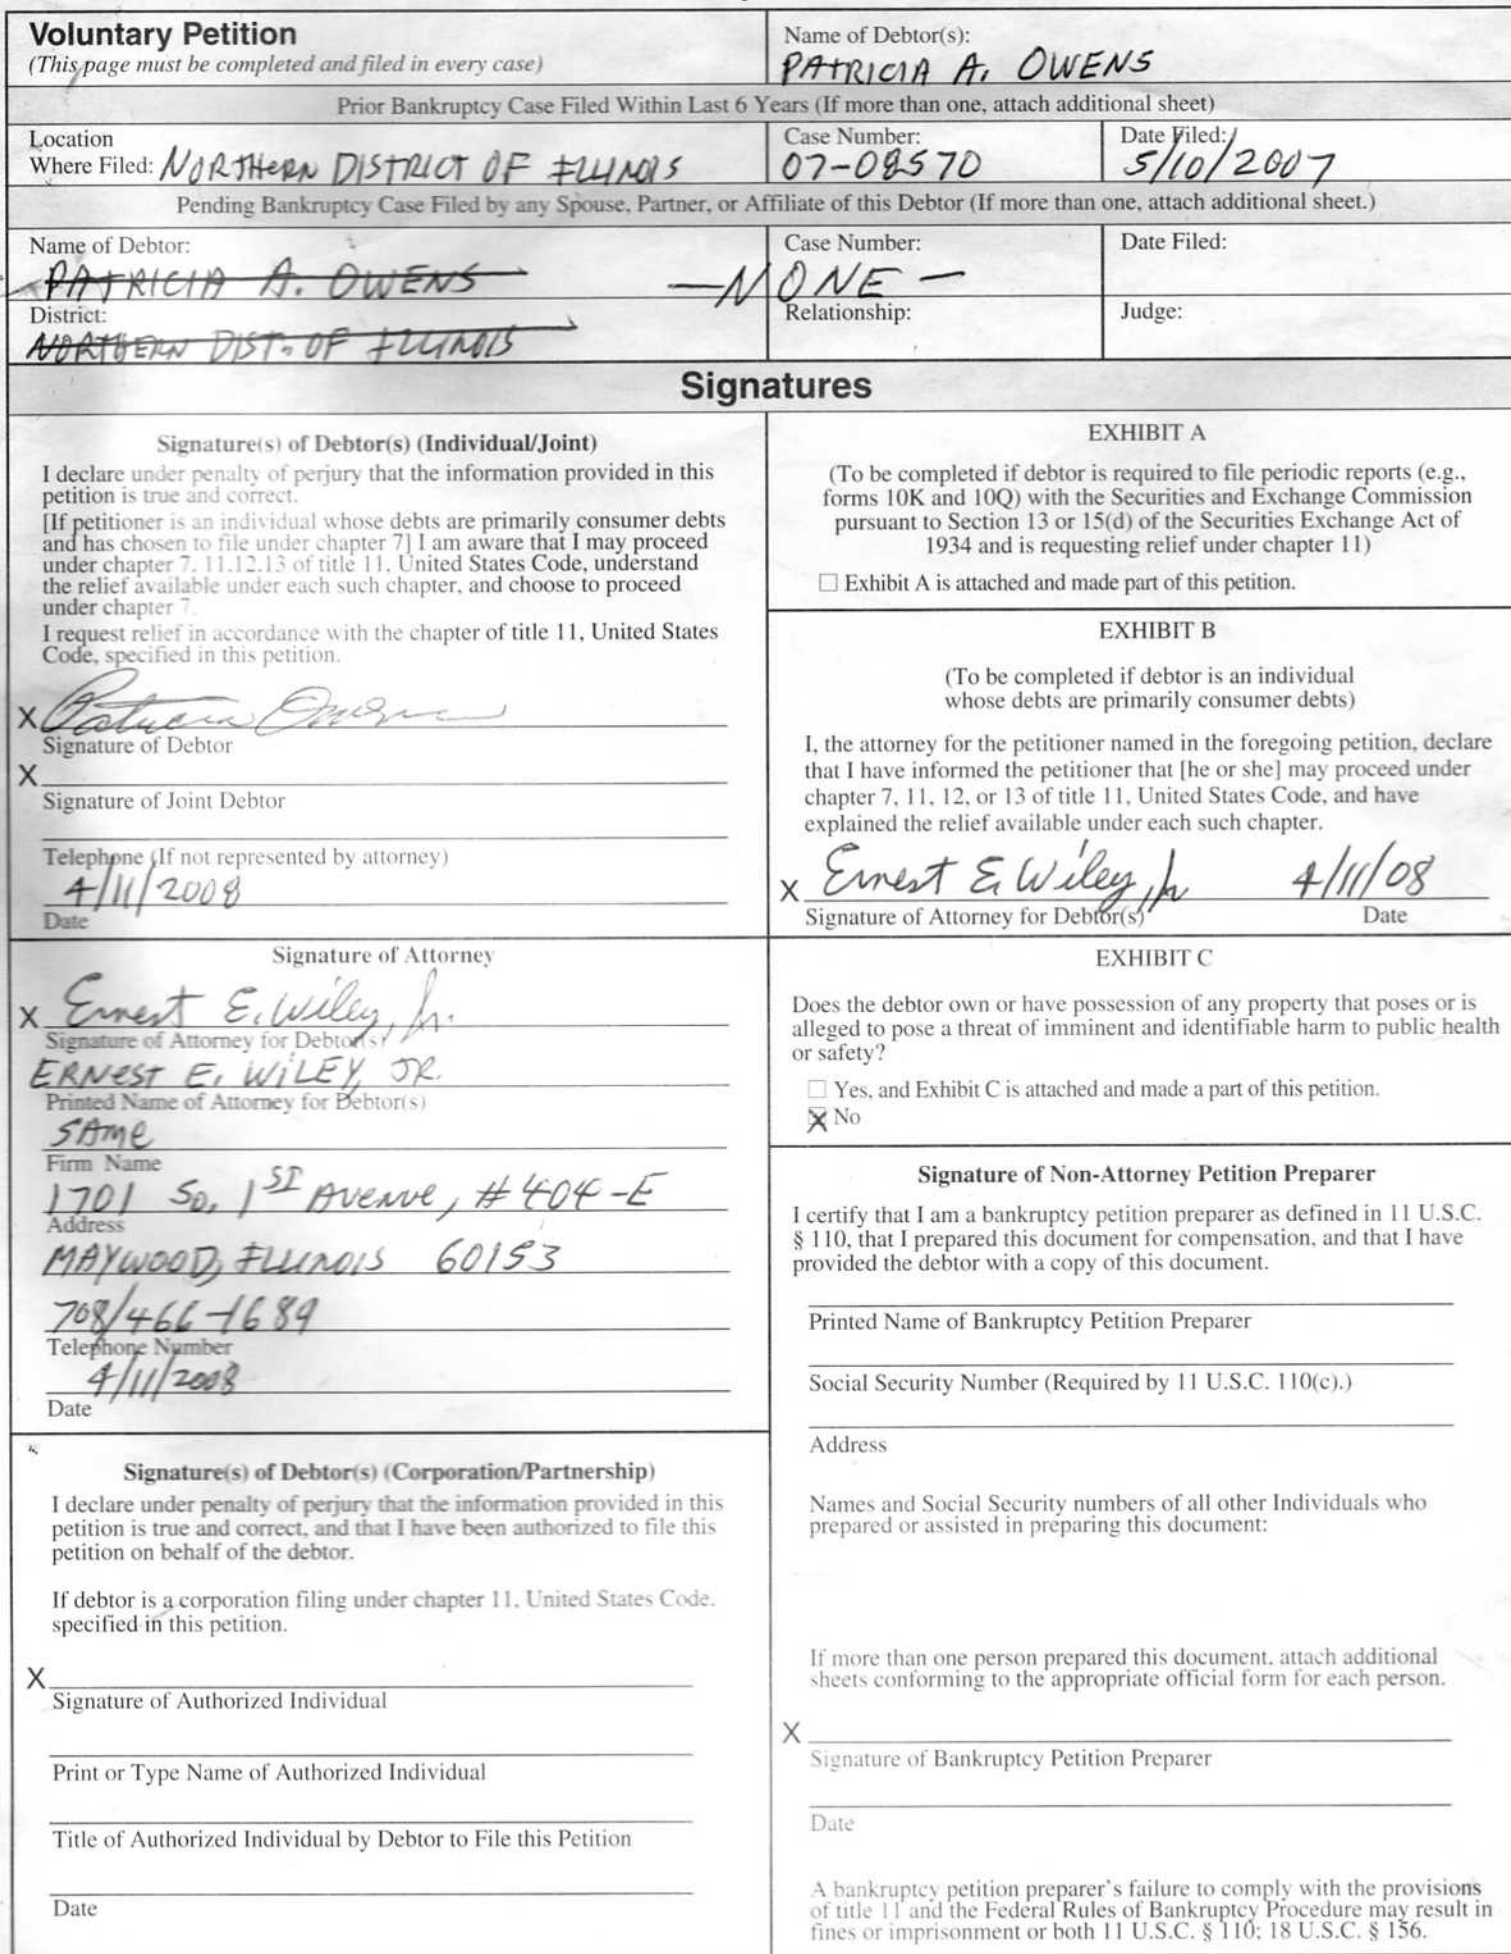 Voluntary Petition
(This page must be completed and filed in every case)
Name of Debtor(s):
PATRICIA A. OWENS
Prior Bankruptcy Case Filed Within Last 6 Years (If more than one, attach additional sheet)
Location
Where Filed: NORTHERN DISTRICT OF ILLINOIS
Case Number:
07-08570
Date Filed:
5/10/2007
Pending Bankruptcy Case Filed by any Spouse, Partner, or Affiliate of this Debtor (If more than one, attach additional sheet.)
Name of Debtor:
PATRICIA A. OWENS
Case Number:
-NONE-
Date Filed:
District:
NORTHERN DIST. OF ILLINOIS
Relationship:
Judge:
Signatures
Signature(s) of Debtor(s) (Individual/Joint)
I declare under penalty of perjury that the information provided in this
petition is true and correct.
[If petitioner is an individual whose debts are primarily consumer debts
and has chosen to file under chapter 7] I am aware that I may proceed
under chapter 7, 11,12,13 of title 11, United States Code, understand
the relief available under each such chapter, and choose to proceed
under chapter 7.
I request relief in accordance with the chapter of title 11, United States
Code, specified in this petition.
X Patricia Owens
Signature of Debtor
X
Signature of Joint Debtor
Telephone (If not represented by attorney)
4/11/2008
Date
Signature of Attorney
X Ernest E. Wiley, Jr.
Signature of Attorney for Debtor(s)
ERNEST E. WILEY, JR.
Printed Name of Attorney for Debtor(s)
SAME
Firm Name
1701 So. 1ST AVENUE, #404-E
Address
MAYWOOD, ILLINOIS 60153
708/466-1689
Telephone Number
4/11/2008
Date
Signature(s) of Debtor(s) (Corporation/Partnership)
I declare under penalty of perjury that the information provided in this
petition is true and correct, and that I have been authorized to file this
petition on behalf of the debtor.
If debtor is a corporation filing under chapter 11, United States Code,
specified in this petition.
X
Signature of Authorized Individual
Print or Type Name of Authorized Individual
Title of Authorized Individual by Debtor to File this Petition
Date
EXHIBIT A
(To be completed if debtor is required to file periodic reports (e.g.,
forms 10K and 10Q) with the Securities and Exchange Commission
pursuant to Section 13 or 15(d) of the Securities Exchange Act of
1934 and is requesting relief under chapter 11)
☐ Exhibit A is attached and made part of this petition.
EXHIBIT B
(To be completed if debtor is an individual
whose debts are primarily consumer debts)
I, the attorney for the petitioner named in the foregoing petition, declare
that I have informed the petitioner that [he or she] may proceed under
chapter 7, 11, 12, or 13 of title 11, United States Code, and have
explained the relief available under each such chapter.
X Ernest E. Wiley, Jr 4/11/08
Signature of Attorney for Debtor(s) Date
EXHIBIT C
Does the debtor own or have possession of any property that poses or is
alleged to pose a threat of imminent and identifiable harm to public health
or safety?
☐ Yes, and Exhibit C is attached and made a part of this petition.
☒ No
Signature of Non-Attorney Petition Preparer
I certify that I am a bankruptcy petition preparer as defined in 11 U.S.C.
§ 110, that I prepared this document for compensation, and that I have
provided the debtor with a copy of this document.
Printed Name of Bankruptcy Petition Preparer
Social Security Number (Required by 11 U.S.C. 110(c).)
Address
Names and Social Security numbers of all other Individuals who
prepared or assisted in preparing this document:
If more than one person prepared this document, attach additional
sheets conforming to the appropriate official form for each person.
X
Signature of Bankruptcy Petition Preparer
Date
A bankruptcy petition preparer's failure to comply with the provisions
of title 11 and the Federal Rules of Bankruptcy Procedure may result in
fines or imprisonment or both 11 U.S.C. § 110; 18 U.S.C. § 156.